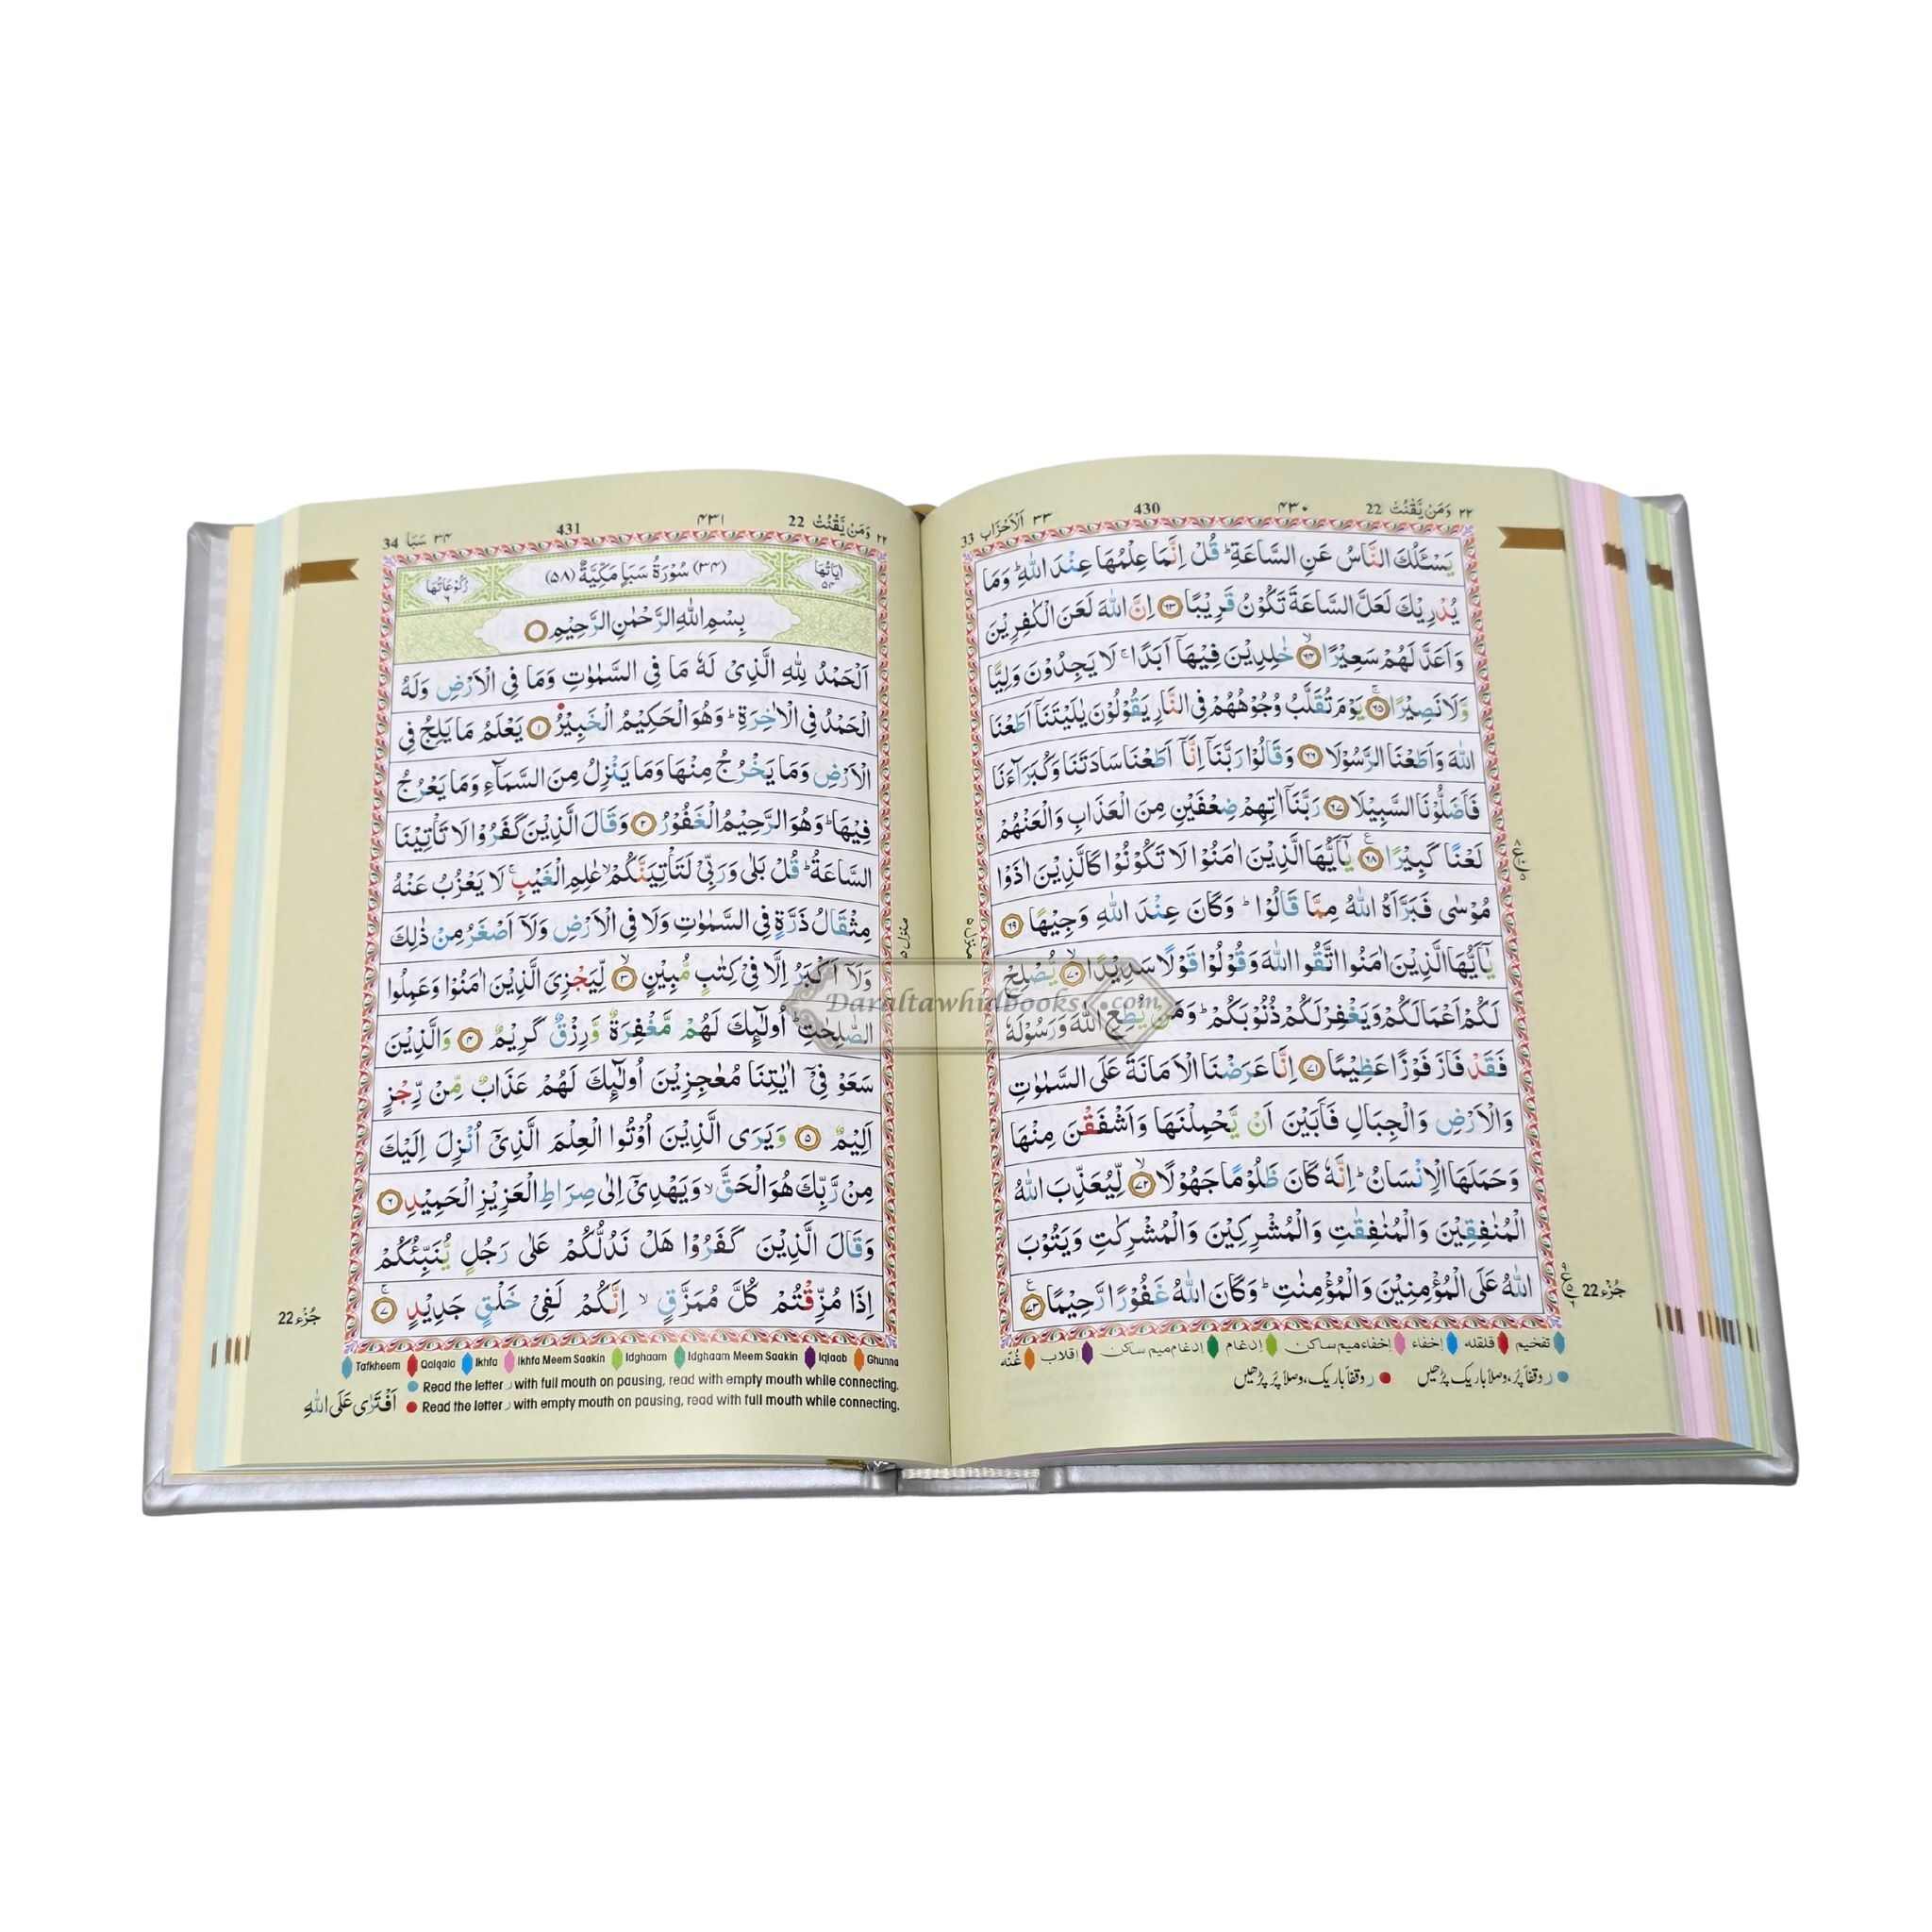 ٢٢ وَمَنْ يَّقْنُتْ 22 ۴۳۰ 430 ٣٣ اَلْاَحْزَاب 33
يَسْـَٔلُكَ النَّاسُ عَنِ السَّاعَةِ ؕ قُلْ اِنَّمَا عِلْمُهَا عِنْدَ اللّٰهِ ؕ وَمَا
يُدْرِيْكَ لَعَلَّ السَّاعَةَ تَكُوْنُ قَرِيْبًا ۶۳ اِنَّ اللّٰهَ لَعَنَ الْكٰفِرِيْنَ
وَاَعَدَّ لَهُمْ سَعِيْرًا ۙ ۶۴ خٰلِدِيْنَ فِيْهَاۤ اَبَدًا ۚ لَا يَجِدُوْنَ وَلِيًّا
وَّلَا نَصِيْرًا ۚ ۶۵ يَوْمَ تُقَلَّبُ وُجُوْهُهُمْ فِى النَّارِ يَقُوْلُوْنَ يٰلَيْتَنَاۤ اَطَعْنَا
اللّٰهَ وَاَطَعْنَا الرَّسُوْلَا ۶۶ وَقَالُوْا رَبَّنَاۤ اِنَّاۤ اَطَعْنَا سَادَتَنَا وَكُبَرَآءَنَا
فَاَضَلُّوْنَا السَّبِيْلَا ۶۷ رَبَّنَاۤ اٰتِهِمْ ضِعْفَيْنِ مِنَ الْعَذَابِ وَالْعَنْهُمْ
لَعْنًا كَبِيْرًا ۶۸ يٰۤاَيُّهَا الَّذِيْنَ اٰمَنُوْا لَا تَكُوْنُوْا كَالَّذِيْنَ اٰذَوْا
مُوْسٰى فَبَرَّاَهُ اللّٰهُ مِمَّا قَالُوْا ؕ وَكَانَ عِنْدَ اللّٰهِ وَجِيْهًا ۶۹
يٰۤاَيُّهَا الَّذِيْنَ اٰمَنُوا اتَّقُوا اللّٰهَ وَقُوْلُوْا قَوْلًا سَدِيْدًا ۙ ۷۰ يُّصْلِحْ
لَكُمْ اَعْمَالَكُمْ وَيَغْفِرْ لَكُمْ ذُنُوْبَكُمْ ؕ وَمَنْ يُّطِعِ اللّٰهَ وَرَسُوْلَهٗ
فَقَدْ فَازَ فَوْزًا عَظِيْمًا ۷۱ اِنَّا عَرَضْنَا الْاَمَانَةَ عَلَى السَّمٰوٰتِ
وَالْاَرْضِ وَالْجِبَالِ فَاَبَيْنَ اَنْ يَّحْمِلْنَهَا وَاَشْفَقْنَ مِنْهَا
وَحَمَلَهَا الْاِنْسَانُ ؕ اِنَّهٗ كَانَ ظَلُوْمًا جَهُوْلًا ۙ ۷۲ لِّيُعَذِّبَ اللّٰهُ
الْمُنٰفِقِيْنَ وَالْمُنٰفِقٰتِ وَالْمُشْرِكِيْنَ وَالْمُشْرِكٰتِ وَيَتُوْبَ
اللّٰهُ عَلَى الْمُؤْمِنِيْنَ وَالْمُؤْمِنٰتِ ؕ وَكَانَ اللّٰهُ غَفُوْرًا رَّحِيْمًا ۷۳
منزل ۵
جُزْء 22
تفخیم قلقله اخفاء اخفاء میم ساکن ادغام ادغام میم ساکن اقلاب غُنّه
ر وقفاً پُر، وصلاً باریک پڑھیں ر وقفاً باریک، وصلاً پُر پڑھیں
٢٢ وَمَنْ يَّقْنُتْ 22 ۴۳۱ 431 ۳۴ سَبَا 34
اٰيَاتُهَا ۵۴ (۳۴) سُوْرَةُ سَبَاٍ مَكِّيَّةٌ (۵۸) رُكُوْعَاتُهَا ۶
بِسْمِ اللّٰهِ الرَّحْمٰنِ الرَّحِيْمِ
اَلْحَمْدُ لِلّٰهِ الَّذِىْ لَهٗ مَا فِى السَّمٰوٰتِ وَمَا فِى الْاَرْضِ وَلَهُ
الْحَمْدُ فِى الْاٰخِرَةِ ؕ وَهُوَ الْحَكِيْمُ الْخَبِيْرُ ۱ يَعْلَمُ مَا يَلِجُ فِى
الْاَرْضِ وَمَا يَخْرُجُ مِنْهَا وَمَا يَنْزِلُ مِنَ السَّمَآءِ وَمَا يَعْرُجُ
فِيْهَا ؕ وَهُوَ الرَّحِيْمُ الْغَفُوْرُ ۲ وَقَالَ الَّذِيْنَ كَفَرُوْا لَا تَاْتِيْنَا
السَّاعَةُ ؕ قُلْ بَلٰى وَرَبِّىْ لَتَاْتِيَنَّكُمْ ۙ عٰلِمِ الْغَيْبِ ۚ لَا يَعْزُبُ عَنْهُ
مِثْقَالُ ذَرَّةٍ فِى السَّمٰوٰتِ وَلَا فِى الْاَرْضِ وَلَاۤ اَصْغَرُ مِنْ ذٰلِكَ
وَلَاۤ اَكْبَرُ اِلَّا فِىْ كِتٰبٍ مُّبِيْنٍ ۙ ۳ لِّيَجْزِىَ الَّذِيْنَ اٰمَنُوْا وَعَمِلُوا
الصّٰلِحٰتِ ؕ اُولٰٓئِكَ لَهُمْ مَّغْفِرَةٌ وَّرِزْقٌ كَرِيْمٌ ۴ وَالَّذِيْنَ
سَعَوْ فِىْۤ اٰيٰتِنَا مُعٰجِزِيْنَ اُولٰٓئِكَ لَهُمْ عَذَابٌ مِّنْ رِّجْزٍ
اَلِيْمٌ ۵ وَيَرَى الَّذِيْنَ اُوْتُوا الْعِلْمَ الَّذِىْۤ اُنْزِلَ اِلَيْكَ
مِنْ رَّبِّكَ هُوَ الْحَقَّ ۙ وَيَهْدِىْۤ اِلٰى صِرَاطِ الْعَزِيْزِ الْحَمِيْدِ ۶
وَقَالَ الَّذِيْنَ كَفَرُوْا هَلْ نَدُلُّكُمْ عَلٰى رَجُلٍ يُّنَبِّئُكُمْ
اِذَا مُزِّقْتُمْ كُلَّ مُمَزَّقٍ ۙ اِنَّكُمْ لَفِىْ خَلْقٍ جَدِيْدٍ ۚ ۷
منزل ۵
جُزْء 22
Tafkheem Qalqala Ikhfa Ikhfa Meem Saakin Idghaam Idghaam Meem Saakin Iqlaab Ghunna
Read the letter ر with full mouth on pausing, read with empty mouth while connecting.
Read the letter ر with empty mouth on pausing, read with full mouth while connecting.
اَفْتَرٰى عَلَى اللّٰهِ
Daraltawhidbooks.com